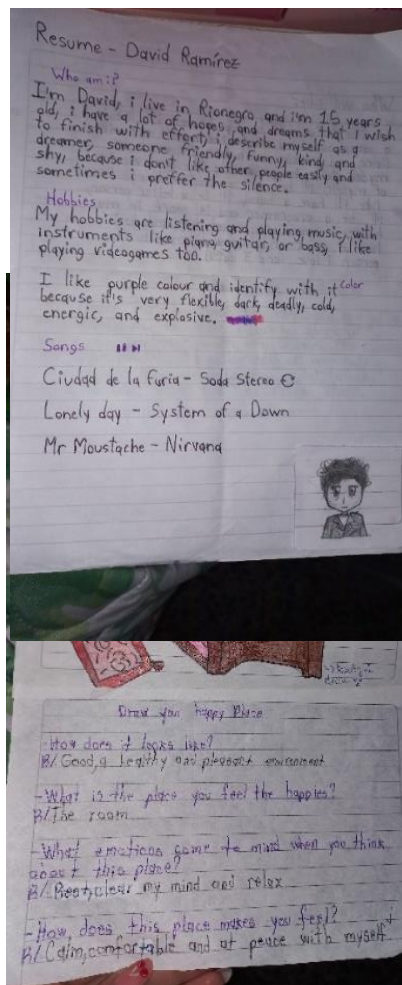 Resume - David Ramírez
Who am i?
I'm David, i live in Rionegro and i'm 15 years
old, i have a lot of hopes and dreams that I wish
to finish with effort, i describe myself as a
dreamer, someone friendly, funny, kind, and
shy, because i don't like other people easily and
sometimes i preffer the silence.
Hobbies
My hobbies are listening and playing music, with
instruments like piano, guitar, or bass, i like
playing videogames too.
I like purple colour and identify with it color
because it's very flexible, dark, deadly, cold,
energic, and explosive.
Songs
Ciudad de la furia - Soda Stereo
Lonely day - System of a Down
Mr Moustache - Nirvana
Draw you happy Place
-How does it looks like?
R/ Good, a healthy and pleasact environment
-What is the place you feel the happies?
R/ The room
-What emotions come to mind when you think
about this place?
R/ Rest, clear my mind and relax
-How does this place makes you feel?
R/ Calm, comfortable and at peace with myself